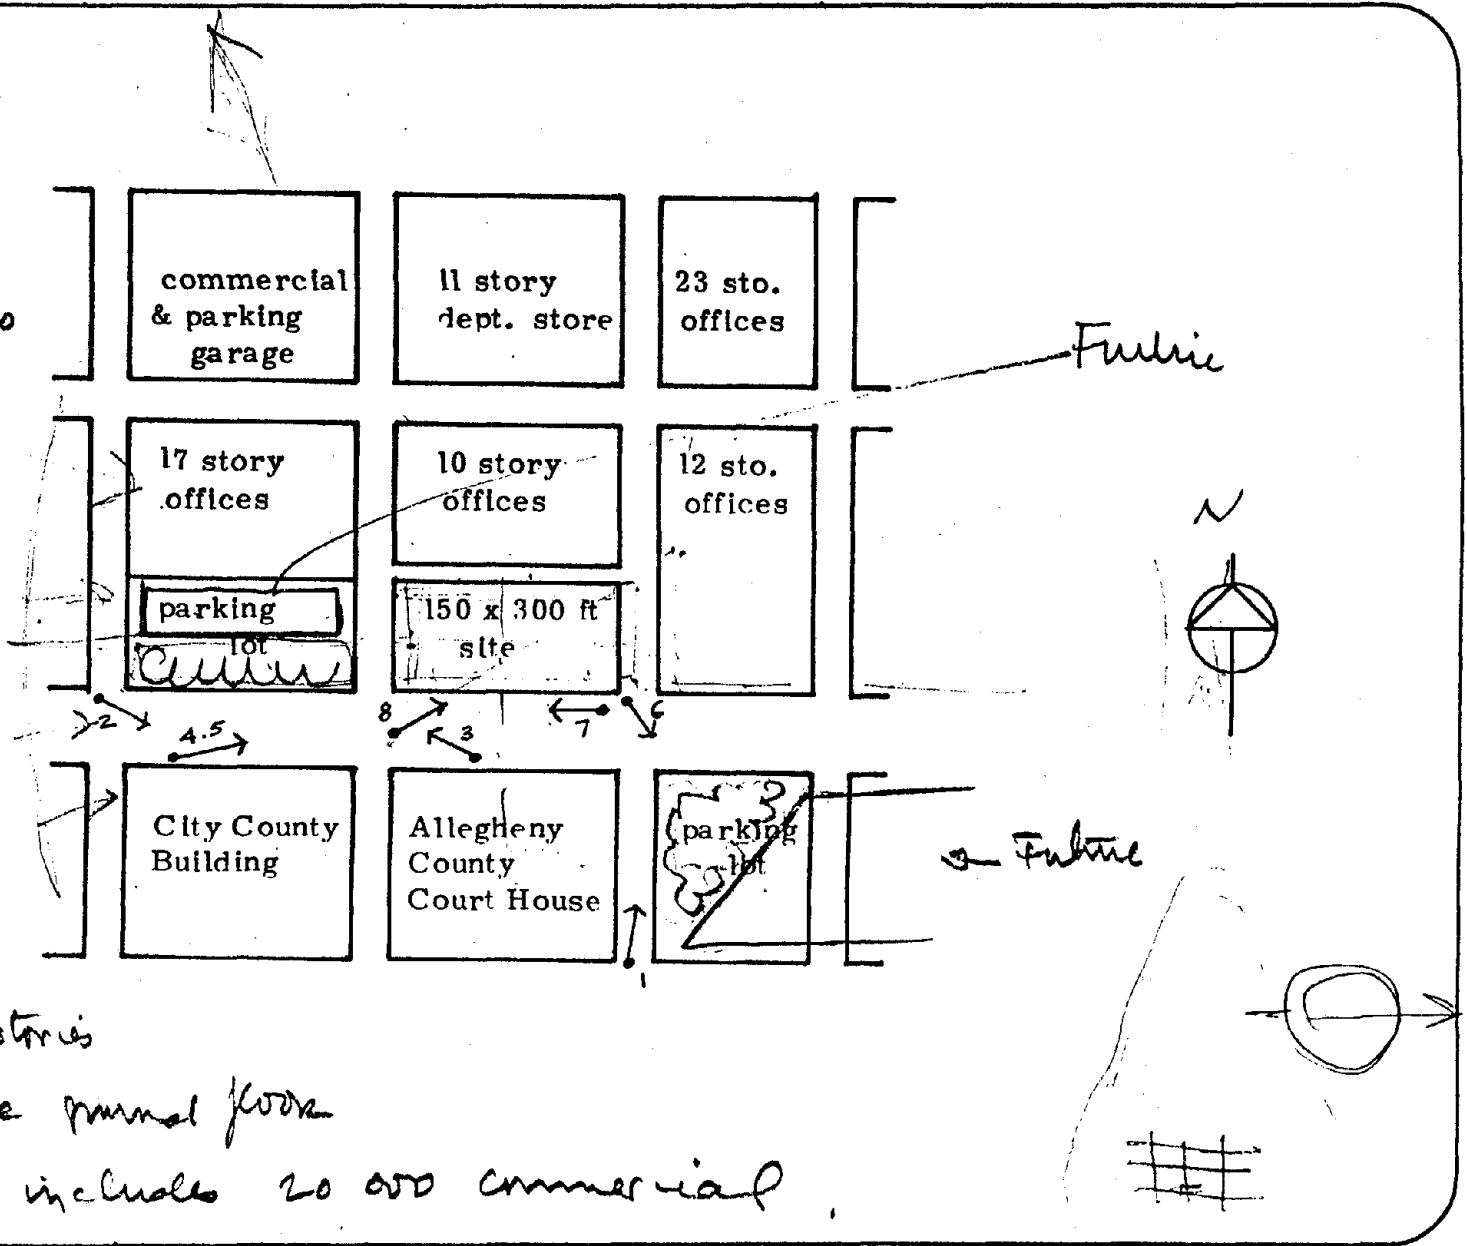 commercial
& parking
garage
11 story
dept. store
23 sto.
offices
Future
17 story
offices
10 story
offices
12 sto.
offices
N
parking
lot
150 x 300 ft
site
2
4.5
8
3
7
6
City County
Building
Allegheny
County
Court House
parking
lot
Future
1
stories
floor
includes 20 000 commercial